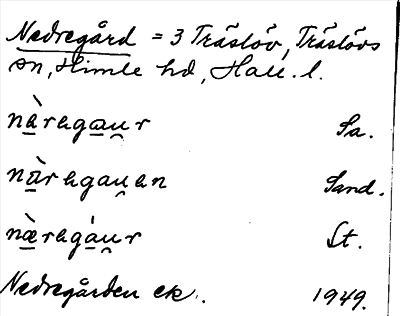 Nedregård = 3 Träslöv, Träslövs
sn, Himle hd, Hall. l.
nàragau̯r Sa.
nàragau̯an Sand.
næ̀ragáu̯r St.
Nedregården ek. 1949.